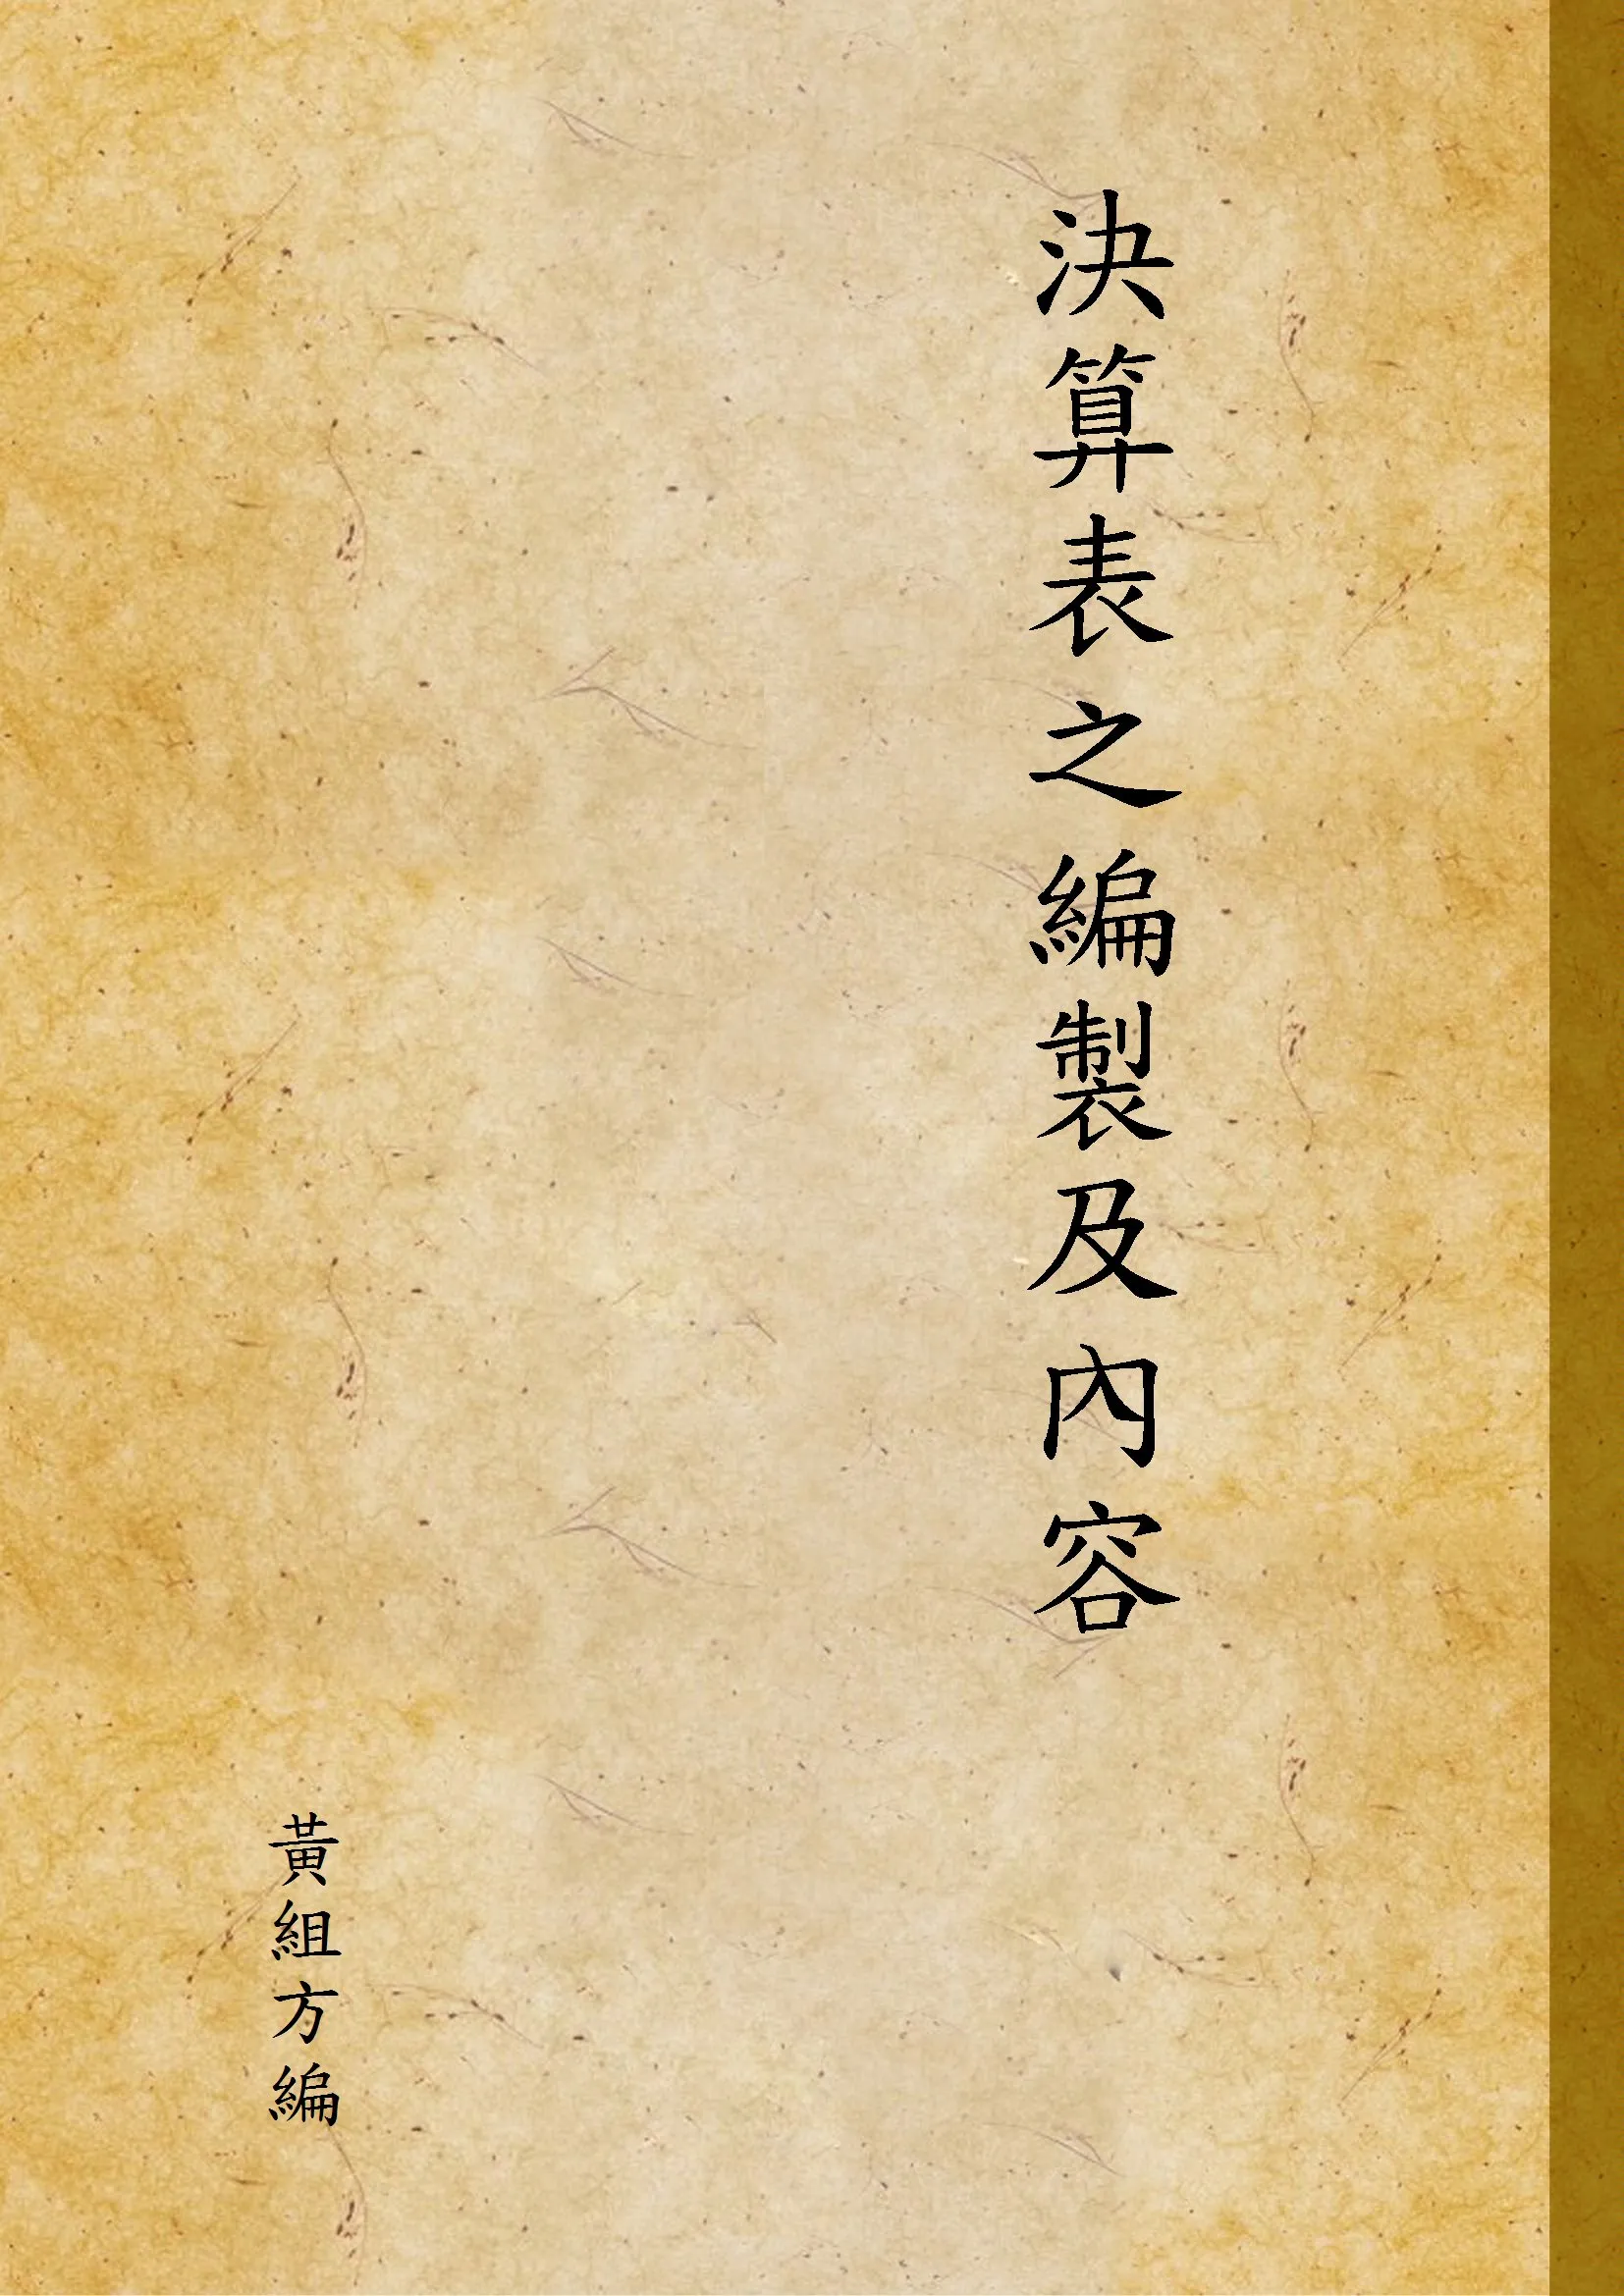 決算表之編製及內容
黃組方編